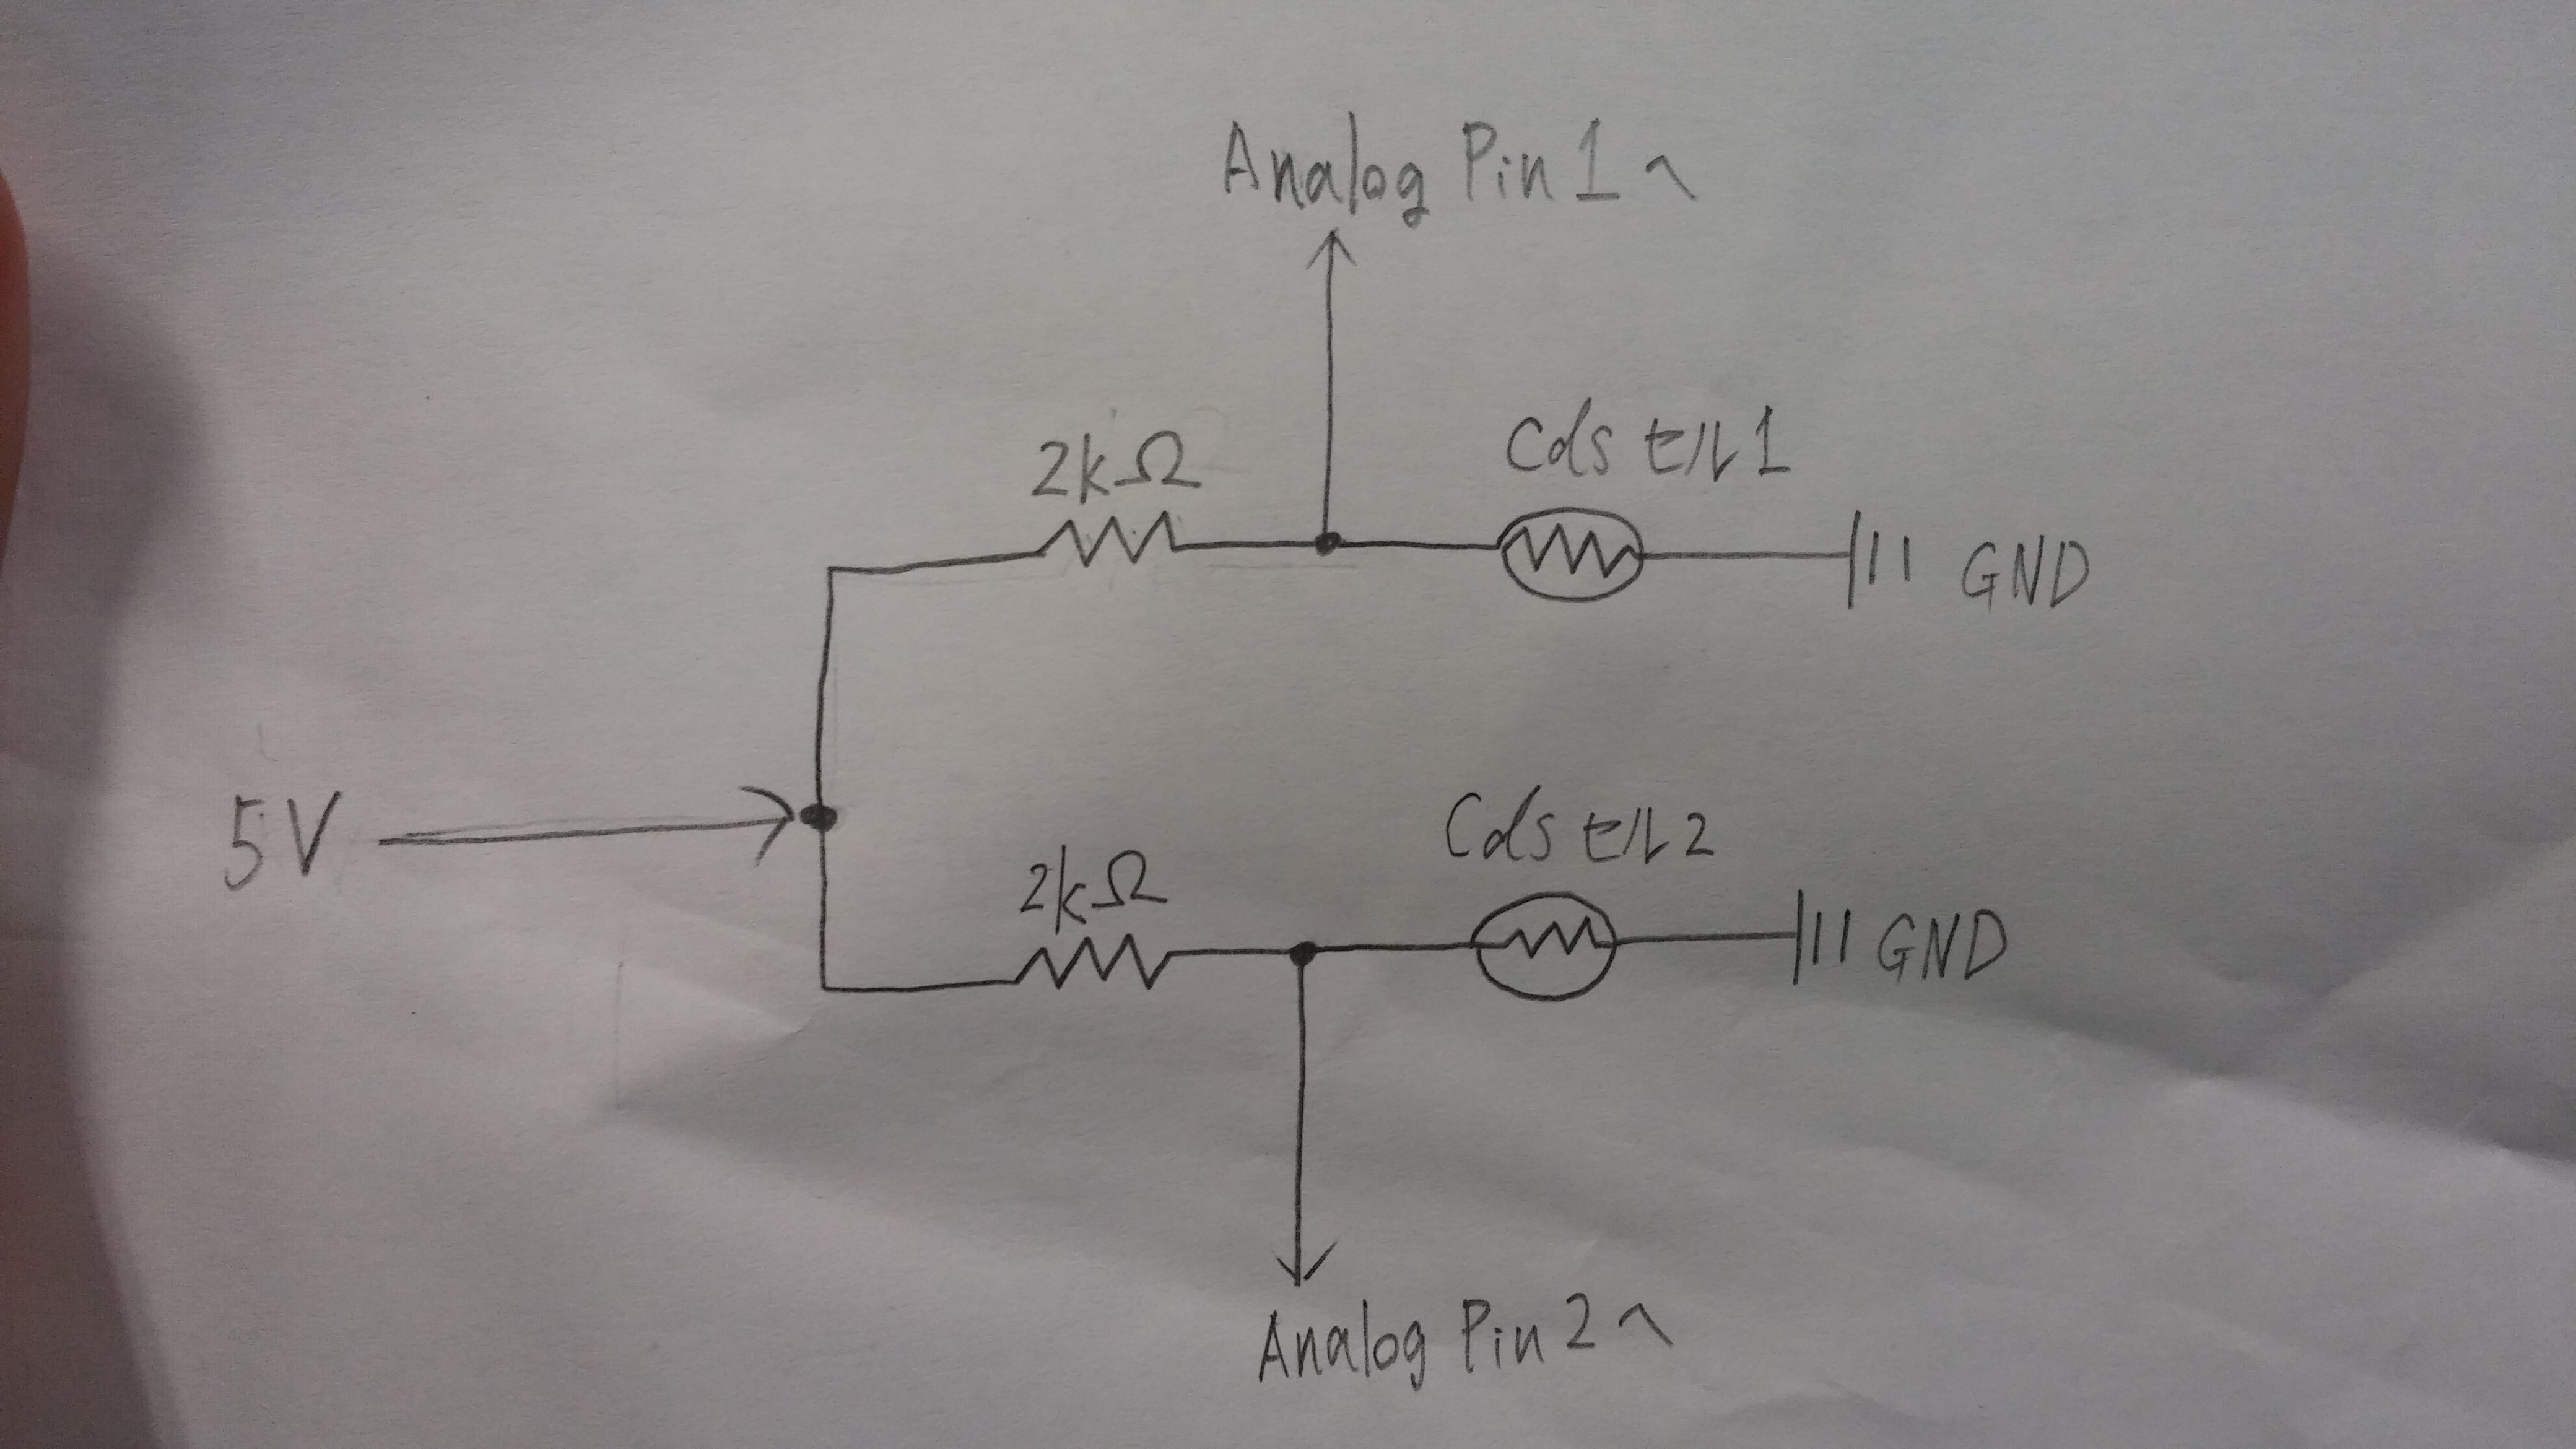 Analog Pin 1 へ
2kΩ
Cds セル 1
GND
5V
2kΩ
Cds セル 2
GND
Analog Pin 2 へ